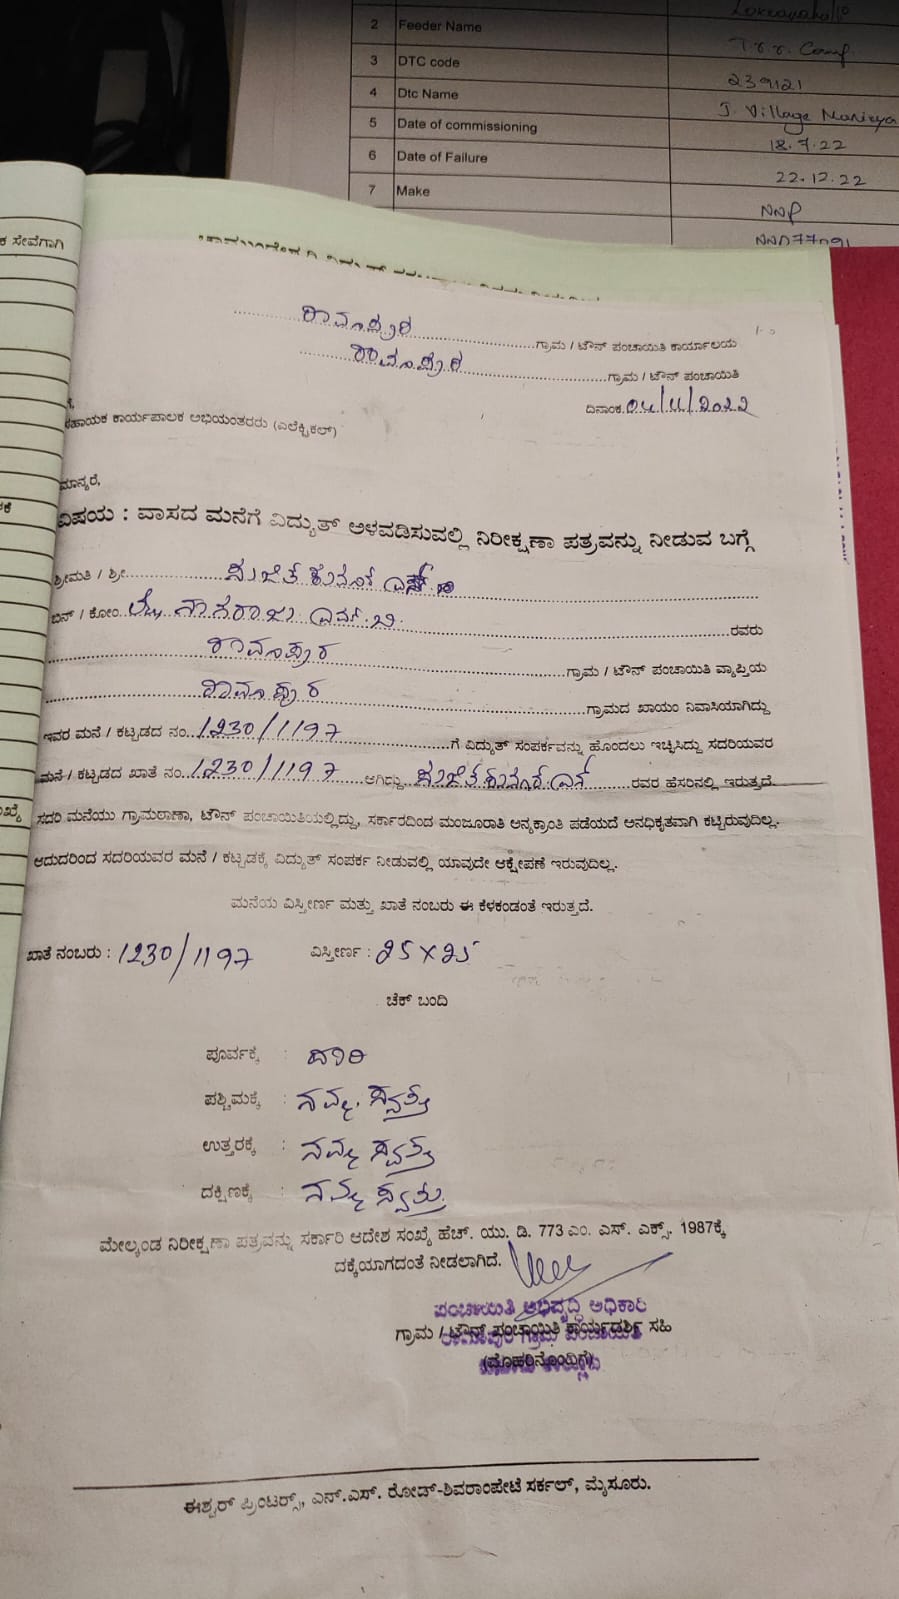 2 Feeder Name
3 DTC code 239121
4 Dtc Name J. Village
5 Date of commissioning 18.7.22
6 Date of Failure 22.12.22
7 Make NNP
ಕ ಸೇವೆಗಾಗಿ
ರಾಮಾಪುರ ಗ್ರಾಮ / ಟೌನ್ ಪಂಚಾಯಿತಿ ಕಾರ್ಯಾಲಯ
ರಾಮಾಪುರ ಗ್ರಾಮ / ಟೌನ್ ಪಂಚಾಯಿತಿ
ದಿನಾಂಕ 04/11/2022
ಸಹಾಯಕ ಕಾರ್ಯಪಾಲಕ ಅಭಿಯಂತರರು (ಎಲೆಕ್ಟ್ರಿಕಲ್)
ಮಾನ್ಯರೆ,
ವಿಷಯ : ವಾಸದ ಮನೆಗೆ ವಿದ್ಯುತ್ ಅಳವಡಿಸುವಲ್ಲಿ ನಿರೀಕ್ಷಣಾ ಪತ್ರವನ್ನು ನೀಡುವ ಬಗ್ಗೆ
ಶ್ರೀಮತಿ / ಶ್ರೀ
ಬಿನ್ / ಕೋಂ ಲೇಟ್ ನಾಗರಾಜು ಎಮ್.ಬಿ. ರವರು
ರಾಮಾಪುರ ಗ್ರಾಮ / ಟೌನ್ ಪಂಚಾಯಿತಿ ವ್ಯಾಪ್ತಿಯ
ರಾಮಾಪುರ ಗ್ರಾಮದ ಖಾಯಂ ನಿವಾಸಿಯಾಗಿದ್ದು
ಇವರ ಮನೆ / ಕಟ್ಟಡದ ನಂ. 1230/1197 ಗೆ ವಿದ್ಯುತ್ ಸಂಪರ್ಕವನ್ನು ಹೊಂದಲು ಇಚ್ಛಿಸಿದ್ದು ಸದರಿಯವರ
ಮನೆ / ಕಟ್ಟಡದ ಖಾತೆ ನಂ. 1230/1197 ಆಗಿದ್ದು ರವರ ಹೆಸರಿನಲ್ಲಿ ಇರುತ್ತದೆ.
ಸದರಿ ಮನೆಯು ಗ್ರಾಮಠಾಣಾ, ಟೌನ್ ಪಂಚಾಯಿತಿಯಲ್ಲಿದ್ದು, ಸರ್ಕಾರದಿಂದ ಮಂಜೂರಾತಿ ಅನ್ಯಕ್ರಾಂತಿ ಪಡೆಯದೆ ಅನಧಿಕೃತವಾಗಿ ಕಟ್ಟಿರುವುದಿಲ್ಲ.
ಆದುದರಿಂದ ಸದರಿಯವರ ಮನೆ / ಕಟ್ಟಡಕ್ಕೆ ವಿದ್ಯುತ್ ಸಂಪರ್ಕ ನೀಡುವಲ್ಲಿ ಯಾವುದೇ ಆಕ್ಷೇಪಣೆ ಇರುವುದಿಲ್ಲ.
ಮನೆಯ ವಿಸ್ತೀರ್ಣ ಮತ್ತು ಖಾತೆ ನಂಬರು ಈ ಕೆಳಕಂಡಂತೆ ಇರುತ್ತದೆ.
ಖಾತೆ ನಂಬರು : 1230/1197 ವಿಸ್ತೀರ್ಣ : 25 X 25
ಚೆಕ್ ಬಂದಿ
ಪೂರ್ವಕ್ಕೆ : ದಾರಿ
ಪಶ್ಚಿಮಕ್ಕೆ : ನಮ್ಮ ಸ್ವತ್ತು
ಉತ್ತರಕ್ಕೆ : ನಮ್ಮ ಸ್ವತ್ತು
ದಕ್ಷಿಣಕ್ಕೆ : ನಮ್ಮ ಸ್ವತ್ತು
ಮೇಲ್ಕಂಡ ನಿರೀಕ್ಷಣಾ ಪತ್ರವನ್ನು ಸರ್ಕಾರಿ ಆದೇಶ ಸಂಖ್ಯೆ ಹೆಚ್. ಯು. ಡಿ. 773 ಎಂ. ಎಸ್. ಎಕ್ಸ್. 1987ಕ್ಕೆ
ದಕ್ಕೆಯಾಗದಂತೆ ನೀಡಲಾಗಿದೆ.
ಪಂಚಾಯಿತಿ ಅಭಿವೃದ್ಧಿ ಅಧಿಕಾರಿ
ಗ್ರಾಮ / ಟೌನ್ ಪಂಚಾಯಿತಿ ಕಾರ್ಯದರ್ಶಿ ಸಹಿ
(ಮೊಹರಿನೊಂದಿಗೆ)
ಈಶ್ವರ್ ಪ್ರಿಂಟರ್ಸ್, ಎನ್.ಎಸ್. ರೋಡ್-ಶಿವರಾಂಪೇಟೆ ಸರ್ಕಲ್, ಮೈಸೂರು.